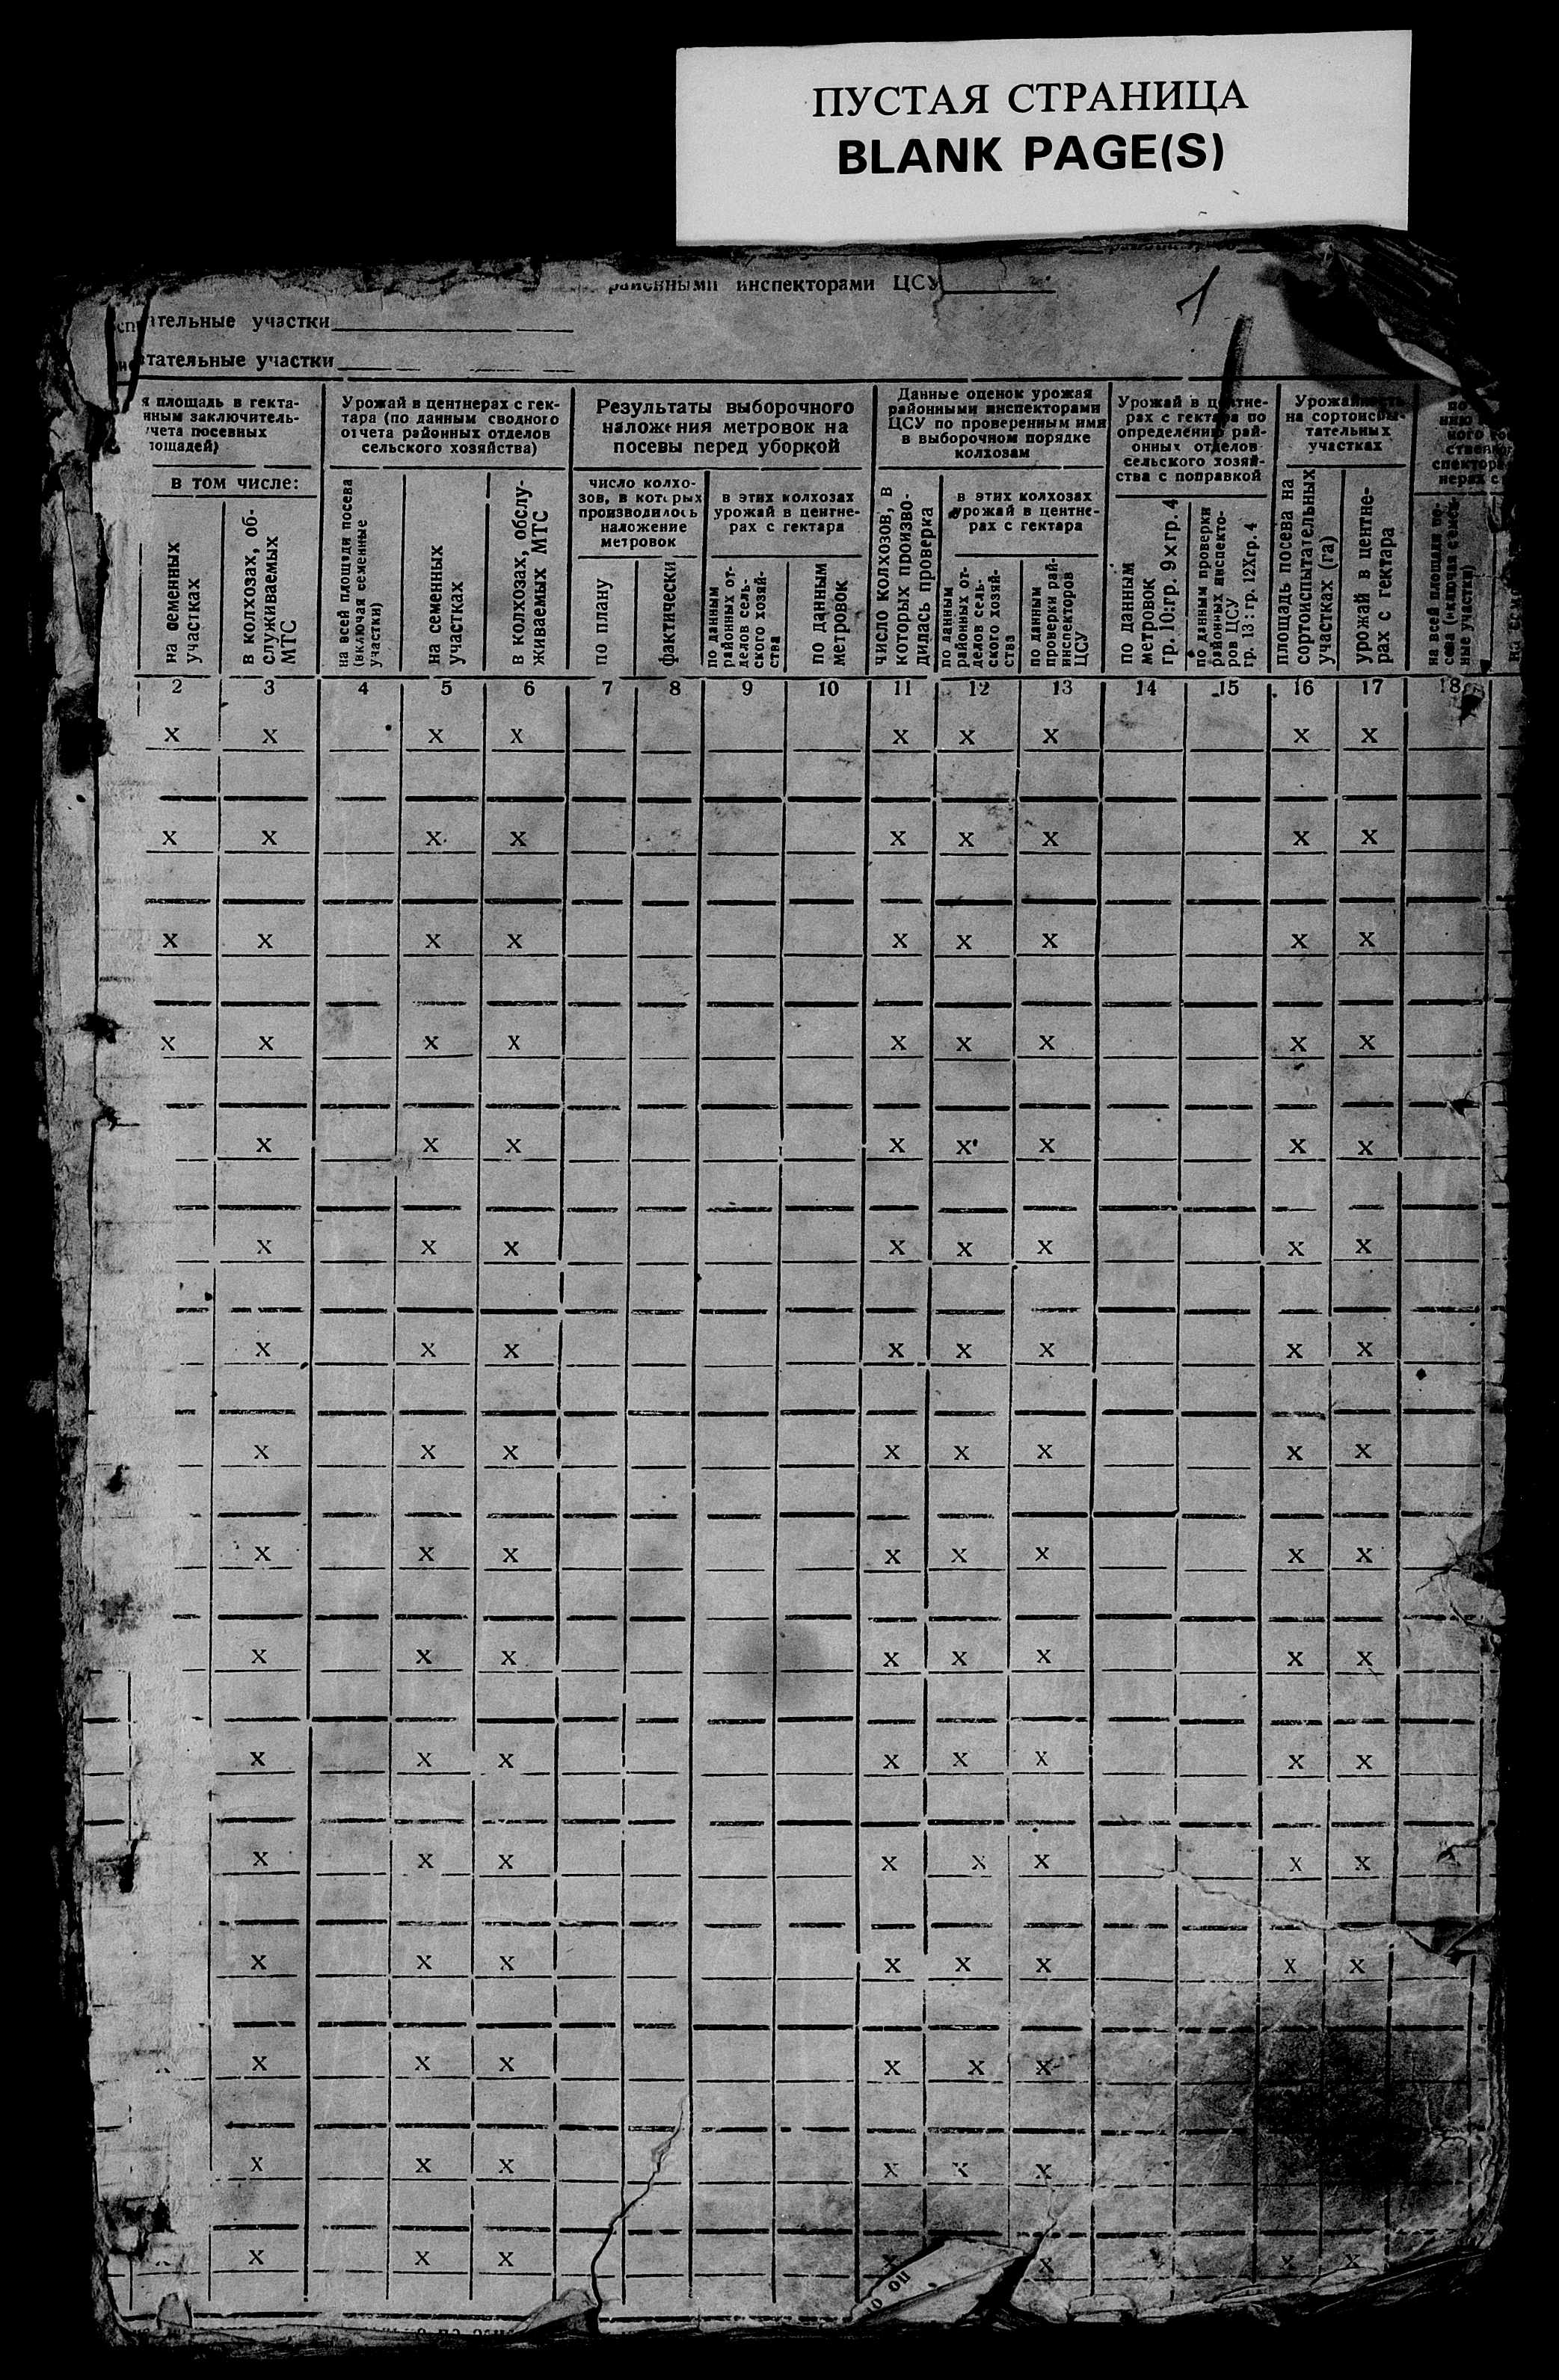 ПУСТАЯ СТРАНИЦА
BLANK PAGE(S)
инспекторами ЦСУ
1
участки
участки
площадь в гекта-
заключитель-
посевных
в том числе:
на семенных
участках
в колхозах, об-
служиваемых
МТС
Урожай в центнерах с гек-
тара (по данным сводного
отчета районных отделов
сельского хозяйства)
на всей площади посева
(включая семенные
участки)
на семенных
участках
в колхозах, обслу-
живаемых МТС
Результаты выборочного
наложения метровок на
посевы перед уборкой
число колхо-
зов, в которых
производилось
наложение
метровок
по плану
фактически
в этих колхозах
урожай в центне-
рах с гектара
по данным
районных от-
делов сель-
ского хозяй-
ства
по данным
метровок
Данные оценок урожая
районными инспекторами
ЦСУ по проверенным ими
в выборочном порядке
колхозам
число колхозов, в
которых произво-
дилась проверка
в этих колхозах
урожай в центне-
рах с гектара
по данным
районных от-
делов сель-
ского хозяй-
ства
по данным
проверки рай-
инспекторов
ЦСУ
Урожай в центне-
рах с гектара по
определению рай-
онных отделов
сельского хозяй-
ства с поправкой
по данным
метровок
гр. 10:гр. 9хгр. 4
по данным проверки
районных инспекто-
ров ЦСУ
гр. 13:гр. 12Хгр. 4
Урожайность
на сортоиспы-
тательных
участках
площадь посева на
сортоиспытательных
участках (га)
урожай в центне-
рах с гектара
на всей площади по-
сева (включая семен-
ные участки)
2 3 4 5 6 7 8 9 10 11 12 13 14 15 16 17 18
х х х х х х х х х
х х х х х х х х х
х х х х х х х х х
х х х х х х х х х
х х х х х х х х
х х х х х х х х
х х х х х х х х
х х х х х х х х
х х х х х х х х
х х х х х х х х
х х х х х х х х
х х х х х х х х
х х х х х х х х
х х х х х х
х х х х х х
х х х х х х х